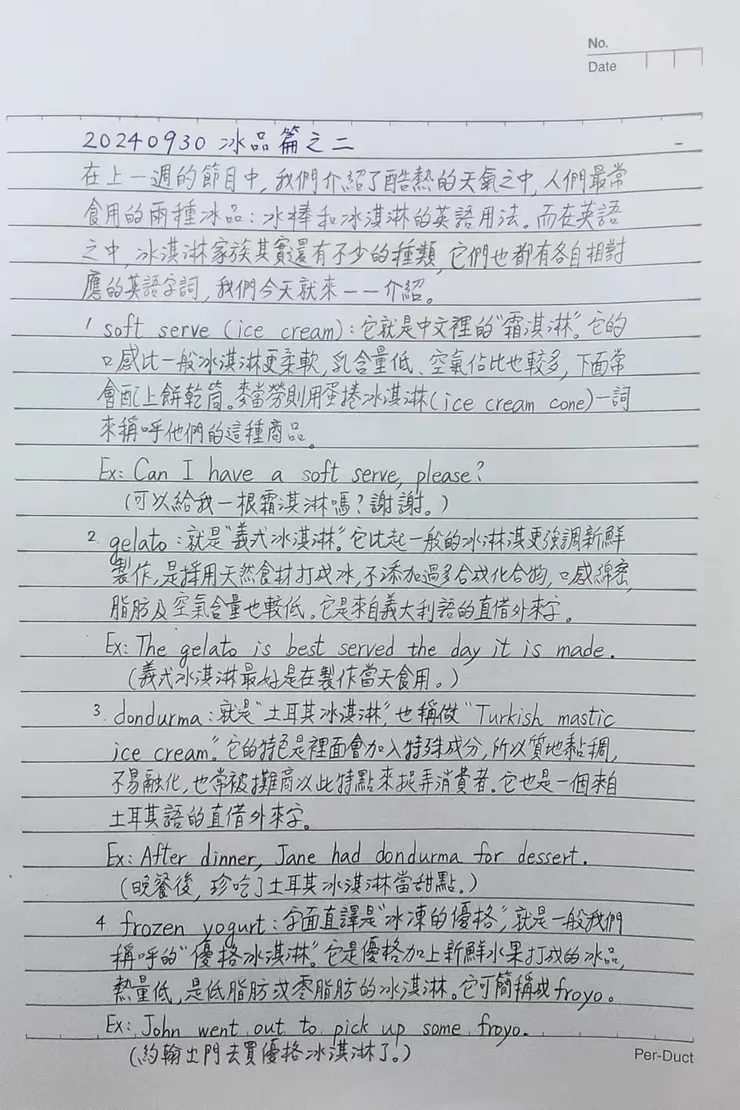 No.
Date
20240930 冰品篇之二
在上一週的節目中, 我們介紹了酷熱的天氣之中, 人們最常
食用的兩種冰品：冰棒和冰淇淋的英語用法。而在英語
之中, 冰淇淋家族其實還有不少的種類, 它們也都有各自相對
應的英語字詞, 我們今天就來一一介紹。
1 soft serve (ice cream)：它就是中文裡的"霜淇淋"。它的
口感比一般冰淇淋更柔軟, 乳含量低、空氣佔比也較多, 下面常
會配上餅乾筒。麥當勞則用蛋捲冰淇淋(ice cream cone)一詞
來稱呼他們的這種商品。
Ex: Can I have a soft serve, please?
(可以給我一根霜淇淋嗎？謝謝。)
2. gelato：就是"義式冰淇淋"。它比起一般的冰淋淇更強調新鮮
製作, 是採用天然食材打成冰, 不添加過多合成化合物, 口感綿密,
脂肪及空氣含量也較低。它是來自義大利語的直借外來字。
Ex: The gelato is best served the day it is made.
(義式冰淇淋最好是在製作當天食用。)
3. dondurma：就是"土耳其冰淇淋", 也稱做"Turkish mastic
ice cream"。它的特色是裡面會加入特殊成分, 所以質地黏稠,
不易融化, 也常被攤商以此特點來捉弄消費者。它也是一個來自
土耳其語的直借外來字。
Ex: After dinner, Jane had dondurma for dessert.
(晚餐後, 珍吃了土耳其冰淇淋當甜點。)
4. frozen yogurt：字面直譯是"冰凍的優格", 就是一般我們
稱呼的"優格冰淇淋"。它是優格加上新鮮水果打成的冰品,
熱量低, 是低脂肪或零脂肪的冰淇淋。它可簡稱成froyo。
Ex: John went out to pick up some froyo.
(約翰出門去買優格冰淇淋了。)
Per-Duct